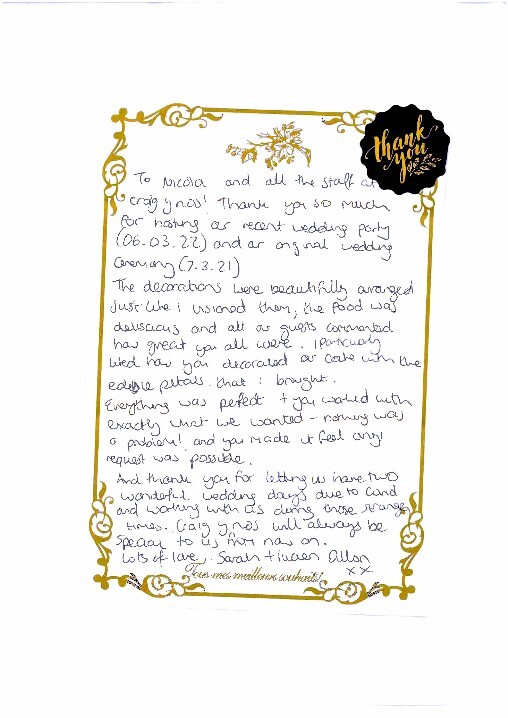 thank you
To Nicola and all the staff at
Craig y nos! Thank you so much
for hosting our recent wedding party
(06.03.22) and our original wedding
Ceremony (7.3.21)
The decorations were beautifully arranged
Just like i visioned them, the food was
delicious and all our guests commented
how great you all were. I particularly
liked how you decorated our cake with the
edible petals that i brought.
Everything was perfect + you worked with
exactly what we wanted - nothing was
a problem! and you made it feel any
request was possible.
And thank you for letting us have two
wonderful wedding days due to Covid
and working with us during those strange
times. Craig y nos will always be
special to us from now on.
Lots of love, Sarah +
xx
Tous mes meilleurs souhaits!